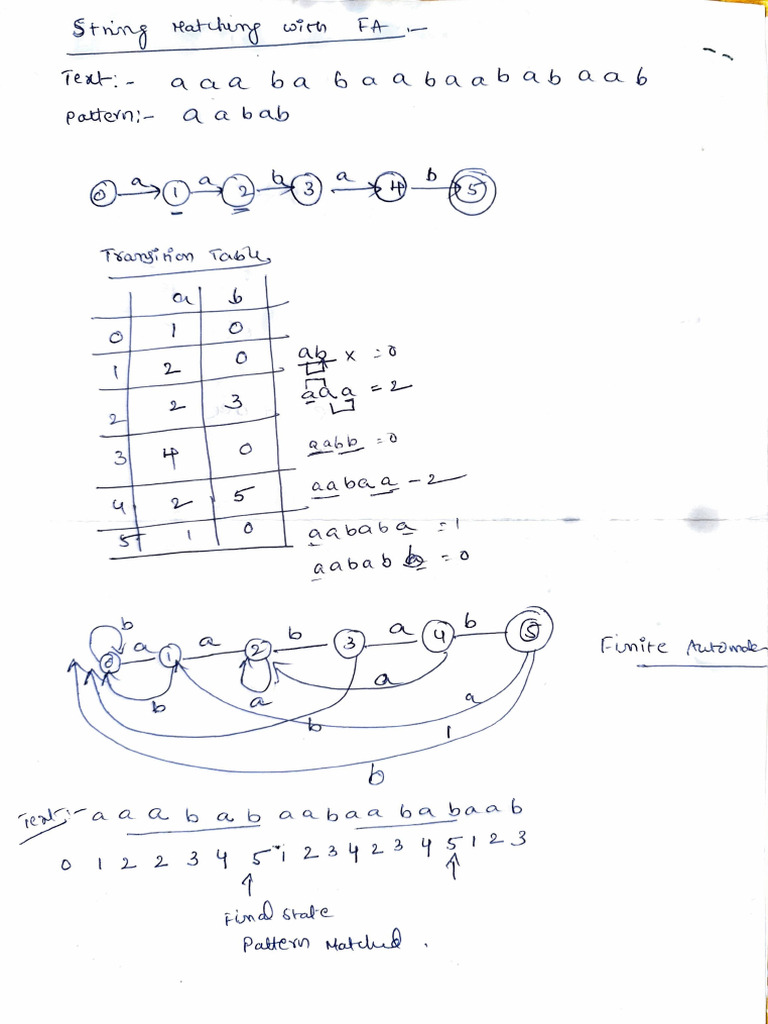 String Matching with FA :-
Text:- a a a b a b a a b a a b a b a a b
Pattern:- a a b a b
0 a 1 a 2 b 3 a 4 b 5
Transition Table
a b
0 1 0
1 2 0
ab x = 0
2 2 3
aaa = 2
3 4 0
aabb = 0
4 2 5
aabaa - 2
5 1 0
aababa = 1
aababb = 0
b
0 a 1 a 2 b 3 a 4 b 5
Finite Automa
b a b a a
1
b
Text:- a a a b a b a a b a a b a b a a b
0 1 2 2 3 4 5 1 2 3 4 2 3 4 5 1 2 3
Final State
Pattern Matched .